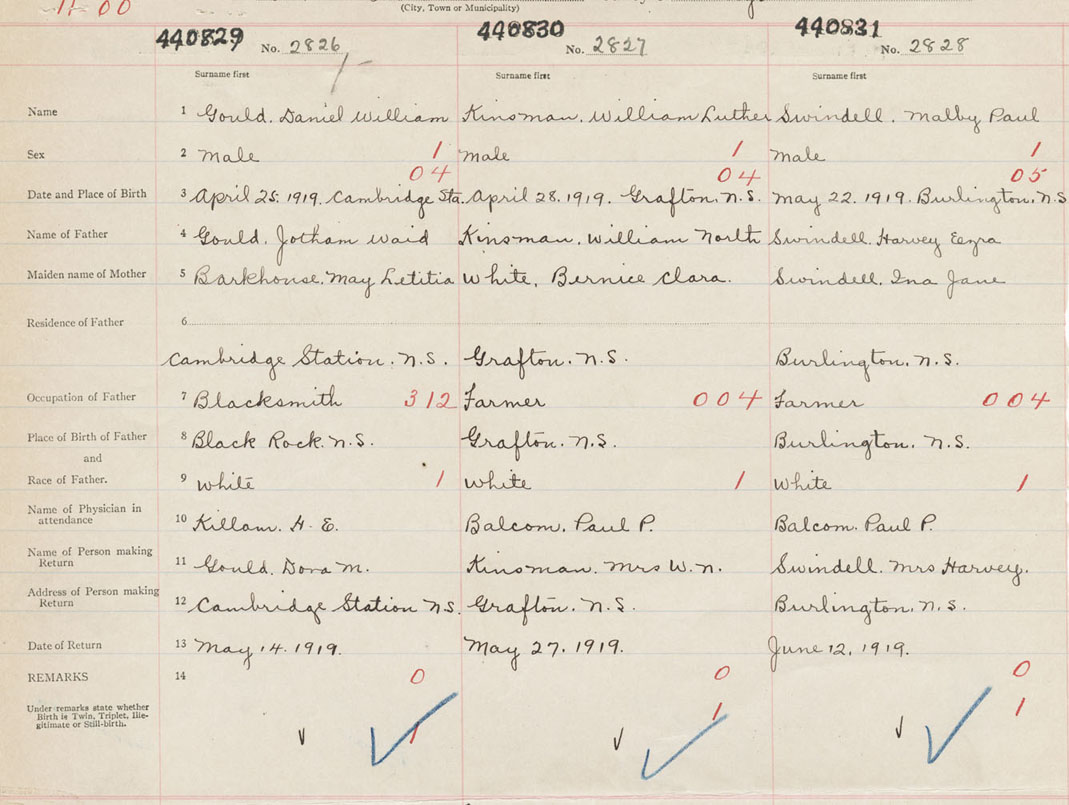 11 00
(City, Town or Municipality)
440829 No. 2826 440830 No. 2827 440831 No. 2828
1/-
Surname first Surname first Surname first
Name 1 Gould. Daniel William Kinsman. William Luther Swindell. Malby Paul
Sex 2 male 1 male 1 male 1
04 04 05
Date and Place of Birth 3 April 25. 1919. Cambridge Sta. April 28. 1919. Grafton. N.S. May 22. 1919. Burlington. N.S
Name of Father 4 Gould. Jotham Waid Kinsman. William North Swindell. Harvey Ezra
Maiden name of Mother 5 Barkhouse. May Letitia White. Bernice Clara. Swindell. Ina Jane
Residence of Father 6
Cambridge Station. N.S. Grafton. N.S. Burlington. N.S.
Occupation of Father 7 Blacksmith 312 Farmer 004 Farmer 004
Place of Birth of Father 8 Black Rock. N.S. Grafton. N.S. Burlington. N.S.
and
Race of Father. 9 white 1 white 1 White 1
Name of Physician in
attendance 10 Killam. H. E. Balcom. Paul P. Balcom. Paul P.
Name of Person making
Return 11 Gould. Dora M. Kinsman. Mrs W. N. Swindell. Mrs Harvey.
Address of Person making
Return 12 Cambridge Station N.S. Grafton. N.S. Burlington. N.S.
Date of Return 13 May 14. 1919. May 27. 1919. June 12, 1919.
REMARKS 14 0 0 0
Under remarks state whether
Birth is Twin, Triplet, Ille-
gitimate or Still-birth.
1 1 1